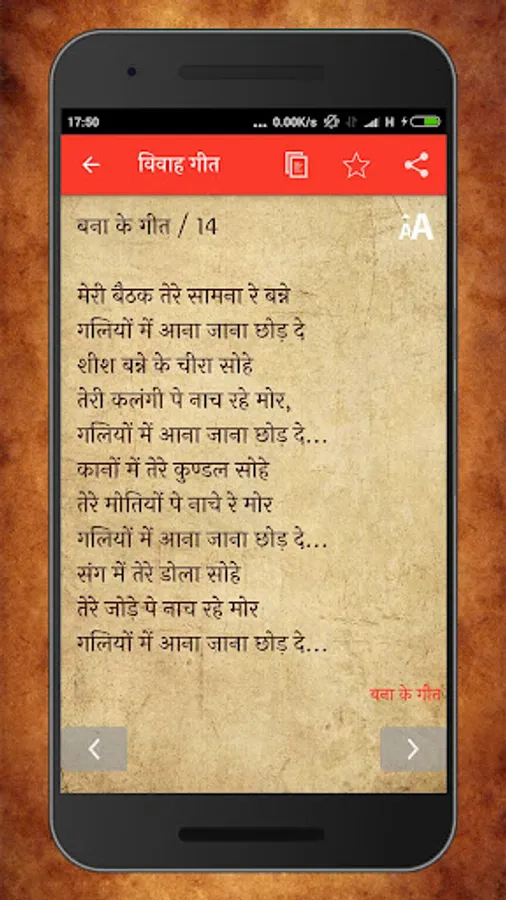 17:50 ... 0.00K/s H
विवाह गीत
बना के गीत / 14
AA
मेरी बैठक तेरे सामना रे बन्ने
गलियों में आना जाना छोड़ दे
शीश बन्ने के चीरा सोहे
तेरी कलंगी पे नाच रहे मोर,
गलियों में आना जाना छोड़ दे...
कानों में तेरे कुण्डल सोहे
तेरे मोतियों पे नाचे रे मोर
गलियों में आना जाना छोड़ दे...
संग में तेरे डोला सोहे
तेरे जोड़े पे नाच रहे मोर
गलियों में आना जाना छोड़ दे...
बना के गीत